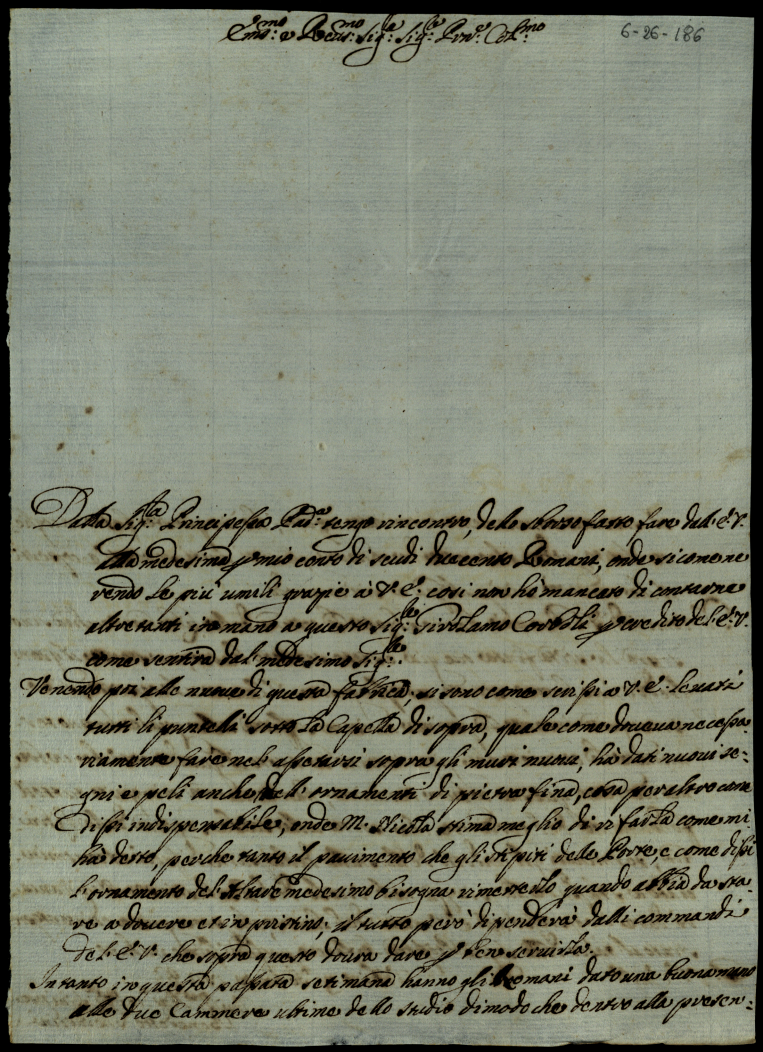 Em.mo e Reu.mo Sig.re Sig.re Prn.e Col.mo
6-26-186
Dalla Sig.ra Principessa Pad.e tengo rincontro, dello sborso fatto fare dall'E.V.
alla medesima p mio conto di scudi duacento Romani, onde si come ne
rendo le più umili grazie à V.E. cosi non hò mancato di contarne
altretanti in mano a questo Sig.re Girolamo p credito del'E.V.
come sentirà dal medesimo Sig.re
Venendo poi alle nuove di questa fabbrica, si sono come scrissi a V.E. levati
tutti li puntelli sotto la Capella di sopra, quale come doueua necessa-
riamente fare nel' assetarsi sopra gli muri nuoui, hà dati nuoui se-
gni e peli anche, nell' ornamenti di pietra fina, cosa per altro come
dissi indispensabile, onde M. Nicola stima meglio di rifarla come mi
hà detto, perche tanto il pauimento che gli stipiti delle Porte, e come dissi
l'ornamento del' Altare medesimo bisogna rimetterlo quando abbia da sta-
re a douere et in pristino, il tutto però dipenderà dalli commandi
del'E.V. che sopra questo dourà dare p ben seruirla.
In tanto in questa passata setimana hanno gli Romani dato una buona mano
alle due Cammere ultime dello studio dimodo che dentro alla presen-